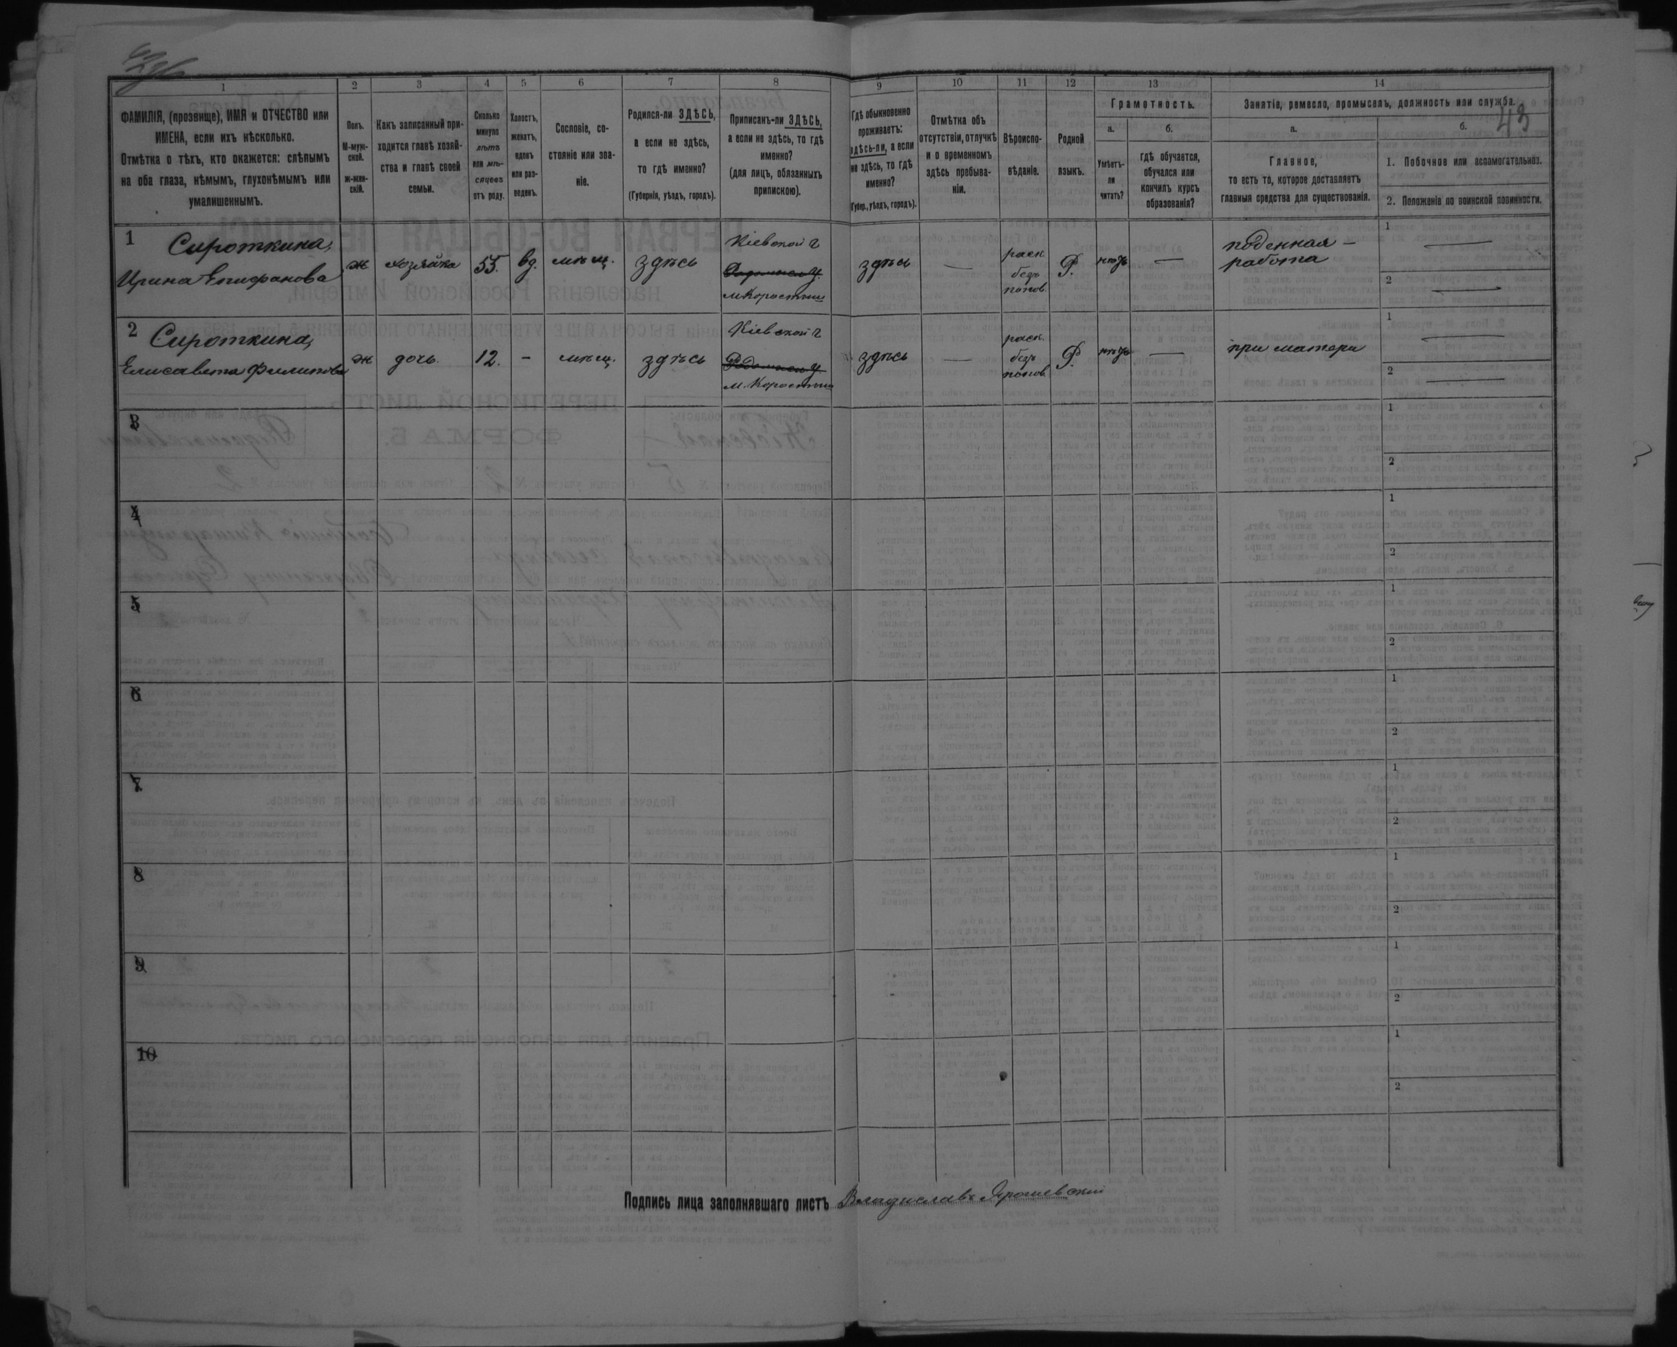 1 2 3 4 5 6 7 8 9 10 11 12 13 14
43
ФАМИЛІЯ, (прозвище), ИМЯ и ОТЧЕСТВО или
ИМЕНА, если ихъ нѣсколько.
Отмѣтка о тѣхъ, кто окажется: слѣпымъ
на оба глаза, нѣмымъ, глухонѣмымъ или
умалишеннымъ.
Полъ.
М-муж-
ской.
ж-жен-
скій.
Какъ записанный при-
ходится главѣ хозяй-
ства и главѣ своей
семьи.
Сколько
минуло
лѣтъ
или мѣ-
сяцевъ
отъ роду.
Холостъ,
женатъ,
вдовъ
или раз-
веденъ.
Сословіе, со-
стояніе или зва-
ніе.
Родился-ли ЗДѢСЬ,
а если не здѣсь,
то гдѣ именно?
(Губернія, уѣздъ, городъ).
Приписанъ-ли ЗДѢСЬ,
а если не здѣсь, то гдѣ
именно?
(для лицъ, обязанныхъ
припискою).
Гдѣ обыкновенно
проживаетъ:
здѣсь-ли, а если
не здѣсь, то гдѣ
именно?
(Губер., уѣздъ, городъ).
Отмѣтка объ
отсутствіи, отлучкѣ
и о временномъ
здѣсь пребыва-
ніи.
Вѣроиспо-
вѣданіе.
Родной
языкъ.
Грамотность.
а.
Умѣетъ-
ли
читать?
б.
гдѣ обучается,
обучался или
кончилъ курсъ
образованія?
Занятіе, ремесло, промыселъ, должность или служба.
а.
Главное,
то есть то, которое доставляетъ
главныя средства для существованія.
б.
1. Побочное или вспомогательное.
2. Положеніе по воинской повинности.
1 Сироткина,
Ирина Епифанова
ж
хозяйка
55.
вд.
мѣщ.
здѣсь
Кіевской г
м. Коростыш
здѣсь
—
раск
безъ
попов.
Р.
нѣтъ
—
поденная –
работа
1 —
2 —
2 Сироткина,
Елисавета Филипова
ж
дочь
12.
–
мѣщ.
здѣсь
Кіевской г
м. Коростыш
здѣсь
—
раск
безъ
попов
Р.
нѣтъ
—
при матери
1 —
2 —
3
1
2
4
1
2
5
1
2
6
1
2
7
1
2
8
1
2
9
1
2
10
1
2
Подпись лица заполнявшаго листъ Владиславъ Ярошевскій